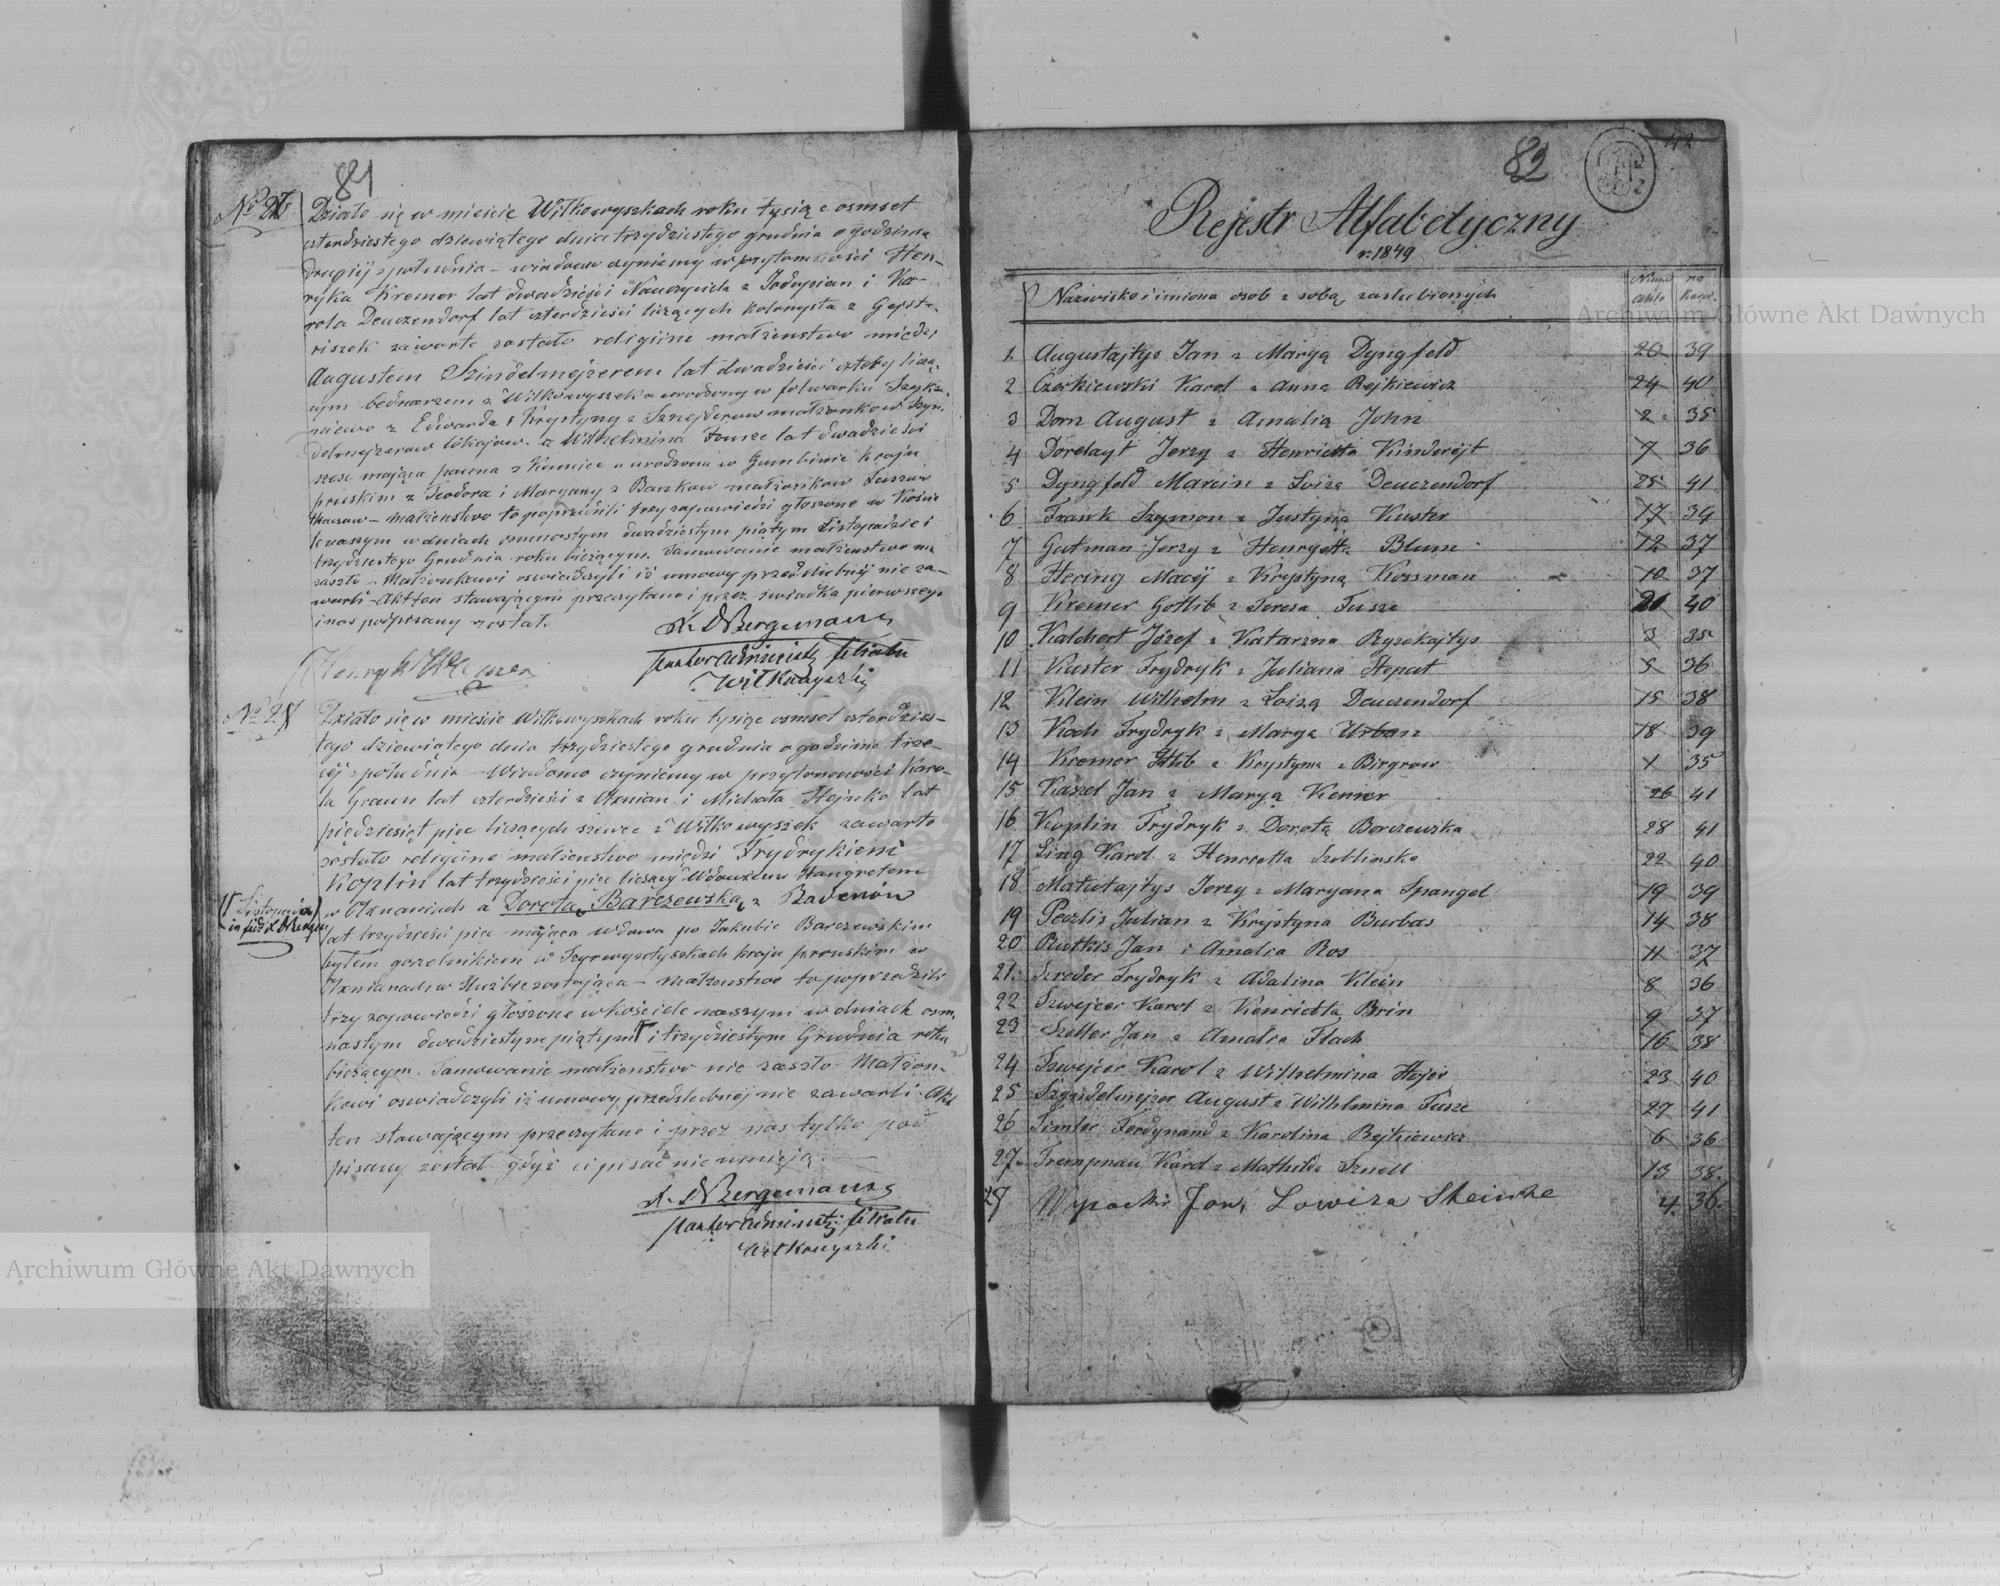 81
No 27
Działo się w mieście Wiłkowyszkach roku tysiąc osmset
czterdziestego dziewiątego dnia trzydziestego grudnia o godzinie
drugiéj z południa – wiadomo czyniemy w przytomności Hen-
ryka Kremer lat dwadzieści Nauczyciela z i Ka-
rola Deuczendorf lat czterdzieści liczących kolonysta z
riszek zawarte zostało religijne małżeństwo między
Augustem Szindelmejzerem lat dwadzieści cztery liczą-
cym bednarzem z Wiłkowyszek a urodzony w folwarku
z Edwarda i Krystyny z Sznejderow małżonkow Szyn-
delmejzerow a Wilhelmina Fusze lat dwadzieści
szesc mająca panna z a urodzona w Gumbinie kraju
pruskim z Teodora i Maryany z małżonkow Fuszow
– małżeństwo to poprzedzili trzy zapowiedzi głoszone w Kościele
naszym w dniach osmnastym dwadziestym piątym Listopadzie i
trzydziestego Grudnia roku bieżącym. Tamowanie małżenstwo nie
zaszło – Małżonkowi oswiadczyli iż umowy przedślubnéj nie za-
warli – Akt ten stawającym przeczytano i przez świadka pierwszego
i nas podpisany został.
Bergemann
pastor Administ filiału
Wiłkowyszki
No 28
Działo się w mieście Wiłkowyszkach roku tysiąc osmset czterdzies-
tego dziewiątego dnia trzydziestego grudnia o godzinie trze-
ciéj z południa – Wiadomo czyniemy w przytomności Karo-
la Grawn lat czterdzieści z Oknian i Michała Hejnko lat
pięćdziesiąt pięc liczących szewce z Wiłkowyszek zawarte
zostało religijne małżenstwo między Frydrykiem
Koplin lat trzydzieści pięc liczący Wdowcem
w Oknaniach a Dorotą Barczewską z
lat trzydzieści pięc mająca wdowa po Jakubie Barczewskim
byłem gorzelnikiem w kraju pruskim w
Oknianach w służbie zostająca – małżenstwo to poprzedzili
trzy zapowiedzi głoszone w kościele naszym w dniach osm-
nastym dwadziestym piątym i trzydziestym Grudnia roku
bieżącym. Tamowanie małżenstwo nie zaszło – Małżon-
kowi oswiadczyli iż umowy przedślubnéj nie zawarli. Akt
ten stawającym przeczytano i przez nas tylko pod-
pisany został gdyż ci pisać nie umieją.
Bergemann
pastor Administ filiału
Wiłkowyszki
82
42
Rejestr Alfabetyczny
r. 1849
Nazwisko i imiona osob z sobą zaslubionych
Num Aktu
na kart.
1. Augustajtys Jan z Maryą Dyngfeld 20 39
2 Czerkiewski Karol z Anną Rejkiewicz 24 40
3 Dorn August z Amalią John 2 35
4 Dorelayt Jerzy z Henrietta Kinderejt 7 36
5 Dyngfeld Marcin z Loizą Deuczendorf 25 41
6 Frank Szymon z Justyną Kuster 17 39
7 Gutman Jerzy z Henryetta Blum 12 37
8 Hering Maciéj z Krystyną Kossman 10 37
9 Kremer Gotlib z Teresa Fusze 21 40
10 Kalchert Józef z Katarzna Ryzokajtys 3 35
11 Kuster Frydryk z Juliana Heput 5 36
12 Klein Wilhelm z Loizą Deuczendorf 15 38
13 Koch Frydryk z Marya Urban 18 39
14 Kremer Gotlib z Krystyna z Birgrow 1 35
15 Kaszel Jan z Maryą Kemer 26 41
16 Koplin Frydryk z Dorotą Borczewska 28 41
17 Ling Karol z Henrietta Szoblinska 22 40
18 Matutajtys Jerzy z Maryana Spangel 19 39
19 Peczlis Julian z Krystyna Burbas 14 38
20 Rutkis Jan i Amalia Ros 11 37
21. Szreder Frydryk z Adalina Klein 8 36
22 Szwejcer Karol z Henrietta Brin 9 37
23 Szeller Jan z Amalia Flach 16 38
24 Szwejcer Karol z Wilhelmina Hojer 23 40
25 Szyndelmejzer August z Wilhelmina Fusze 27 41
26 Timler Ferdynand z Karolina Rejkiewicz 6 36
27. Trempnau Karol z Mathilda Sznell 13 38.
28 Wysocki Jan, Lowiza Steinke 4. 36.
Archiwum Główne Akt Dawnych
Archiwum Główne Akt Dawnych